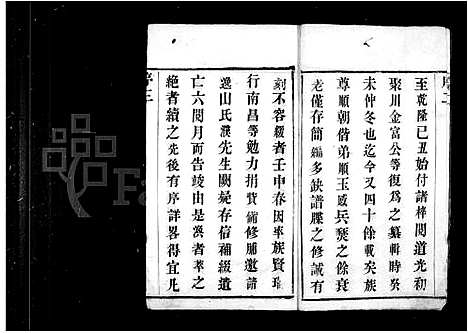 序二
至乾隆己丑始付諸梓閱道光初
聚川金富公等復爲之纂輯時癸
未仲冬也迄今又四十餘載矣族
尊順朝偕弟順玉感兵燹之餘衰
老僅存簡編多缺譜牒之修誠有
刻不容緩者壬申春因率族賢瑞
行南昌等勉力捐貲備修脯邀請
逸山氏濮先生闕疑存信補綴遺
亡六閱月而告竣由是渙者萃之
絕者續之先後有序詳畧得宜凡
序三